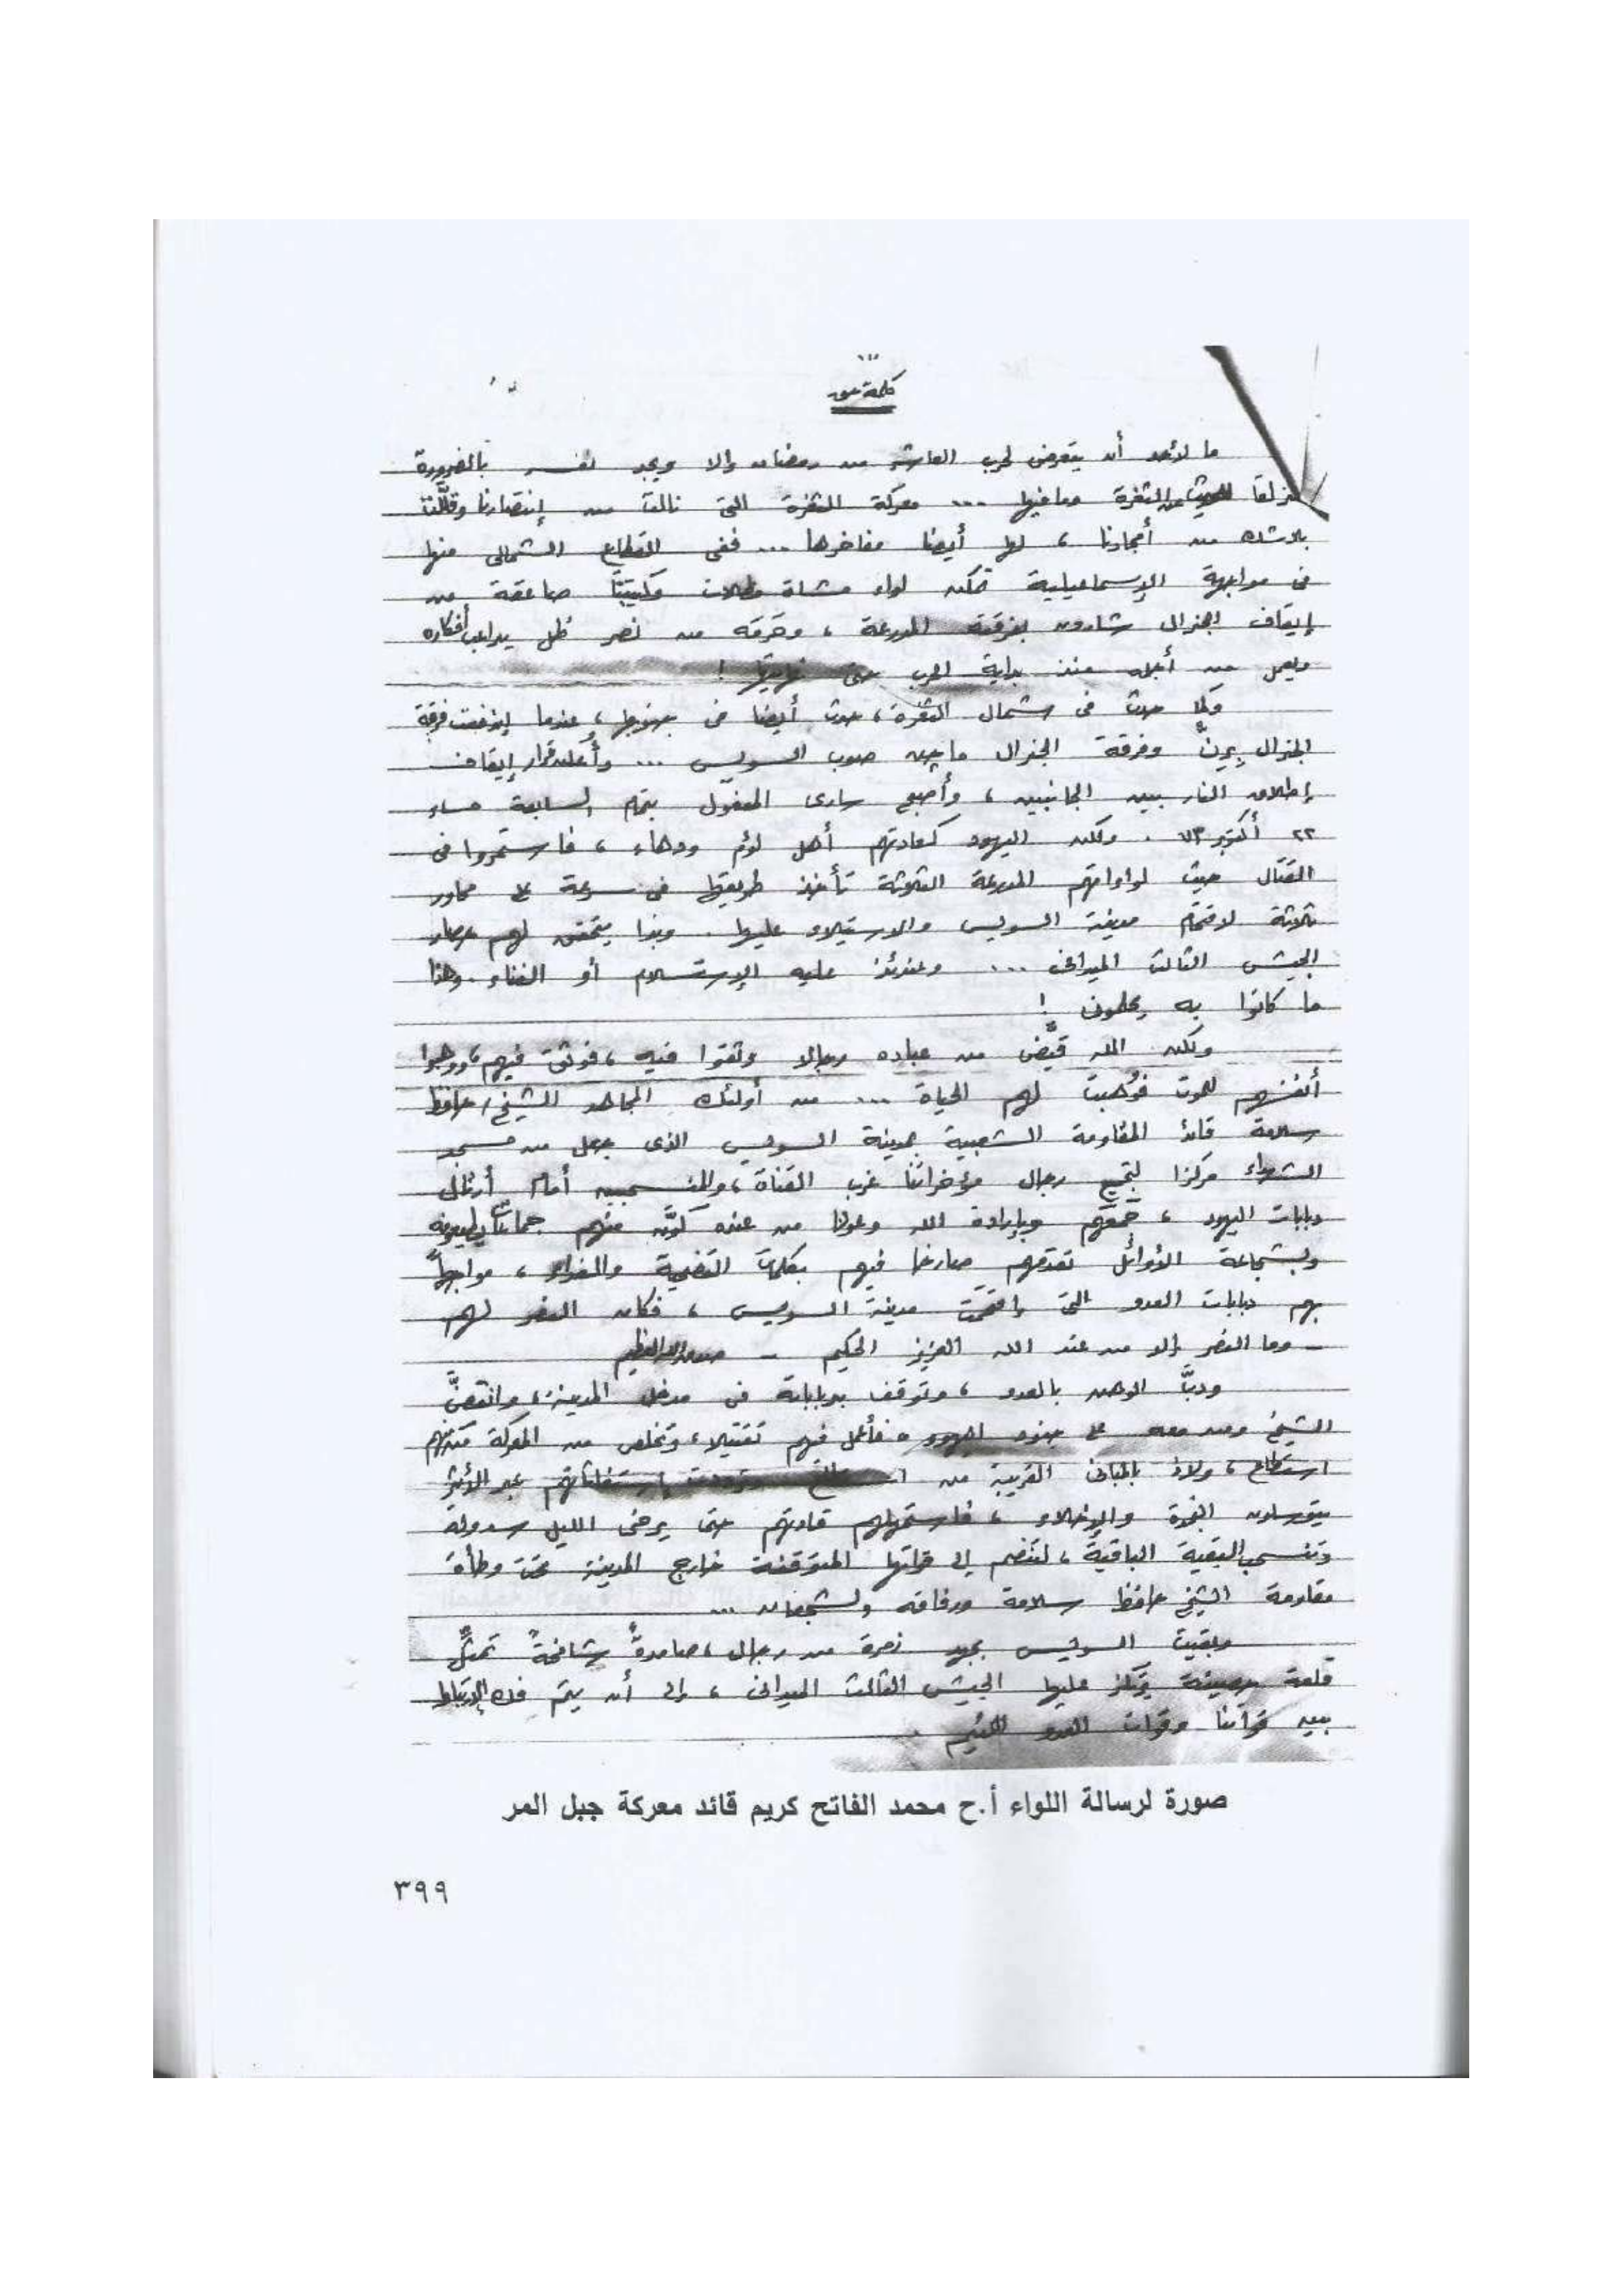 كلمة حق
ما لأحد أن يتعرض لحرب العاشر من رمضان إلا ويجد نفسه بالضرورة
منزلقا للحديث عن الثغرة ومافيها ... معركة الثغرة التى نالت من إنتصارنا وقللت
بلاشك من أمجادنا ، لها أيضا مفاخرها ... ففى القطاع الشمالى منها
فى مواجهة الإسماعيلية تمكن لواء مشاة مظلات وكتيبتا صاعقة من
إيقاف الجنرال شارون بفرقته المدرعة ، وحرمه من نصر ظل يداعب أفكاره
ويعمل من أجله منذ بداية الحرب حتى نهايتها !
وكما حدث فى شمال الثغرة ، حدث أيضا فى جنوبها ، عندما إندفعت فرقة
الجنرال برن وفرقة الجنرال ماجن صوب السويس ... وأعلن قرار إيقاف
إطلاق النار بين الجانبين ، وأصبح سارى المفعول بتمام السابعة مساء
٢٢ أكتوبر ٧٣ . ولكن اليهود كعادتهم أهل لؤم ودهاء ، فاستمروا فى
القتال حيث لواءاتهم المدرعة الثلاثة تأخذ طريقها فى سرعة على محاور
ثلاثة لاقتحام مدينة السويس والاستيلاء عليها . وبذا يتحقق لهم حصار
الجيش الثالث الميدانى ... وعندئذ عليه الإستسلام أو الفناء . وهذا
ما كانوا به يحلمون !
ولكن الله قيَّض من عباده رجالا وثقوا فيه ، فوثق فيهم ، ووهبوا
أنفسهم للموت فوُهبت لهم الحياة ... من أولئك المجاهد الشيخ / حافظ
سلامة قائد المقاومة الشعبية بمدينة السويس الذى جعل من مسجد
الشهداء مركزا لتجمع رجال مؤخراتنا غرب القناة ، والمنسحبين أمام أرتال
دبابات اليهود ، جمعهم وبإرادة الله وعونا من عنده كوَّن منهم جماعات
وبشجاعة الأوائل تقدمهم صارخا فيهم بكلمات التضحية والفداء ، مواجهاً
بهم دبابات العدو التى إقتحمت مدينة السويس ، فكان النصر لهم
– وما النصر إلا من عند الله العزيز الحكيم – صدق الله العظيم
ودبَّ الوهن بالعدو ، وتوقف بدباباته فى مدخل المدينة ، وانقضَّ
الشيخ ومن معه على جنود اليهود ، فأعمل فيهم تقتيلا ، وتخلص من المعركة منهم
استطاع ، ولاذ بالمبانى القريبة من إستغاثاتهم عبر الأثير
يتوسلون النجدة والإخلاء ، فاستمهلهم قادتهم حتى يرخى الليل سدوله
وتنسحب البقية الباقية ، لتنضم إلى قواتها المتوقفة خارج المدينة تحت وطأة
مقاومة الشيخ حافظ سلامة ورفاقه الشجعان ...
وبقيت السويس بجهد زمرة من رجال ، صامدةً شامخةً تمثل
قلعة حصينة يرتكز عليها الجيش الثالث الميدانى ، إلى أن يتم فك الإرتباط
بين قواتنا وقوات العدو اللئيم .
صورة لرسالة اللواء أ.ح محمد الفاتح كريم قائد معركة جبل المر
٣٩٩